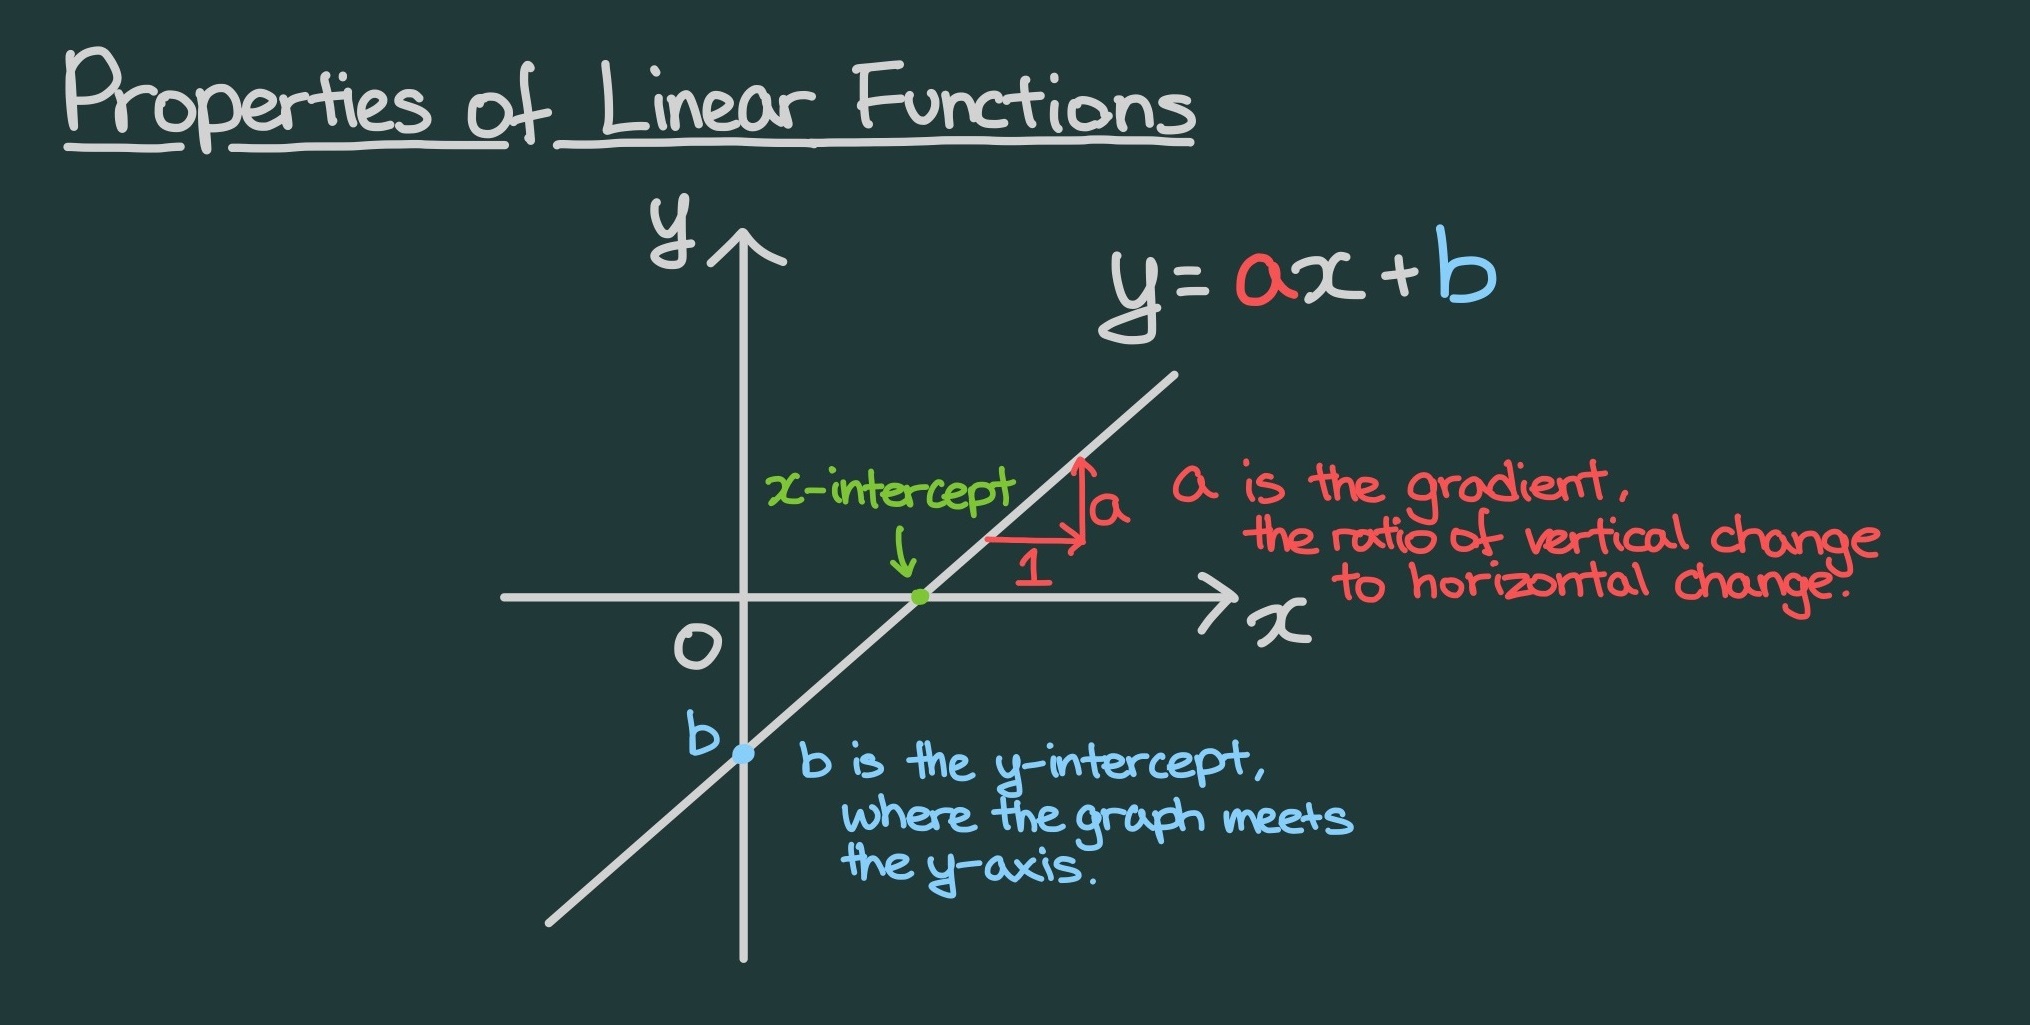 Properties of Linear Functions
y
y = ax + b
x-intercept
a
1
a is the gradient,
the ratio of vertical change
to horizontal change.
x
0
b
b is the y-intercept,
where the graph meets
the y-axis.